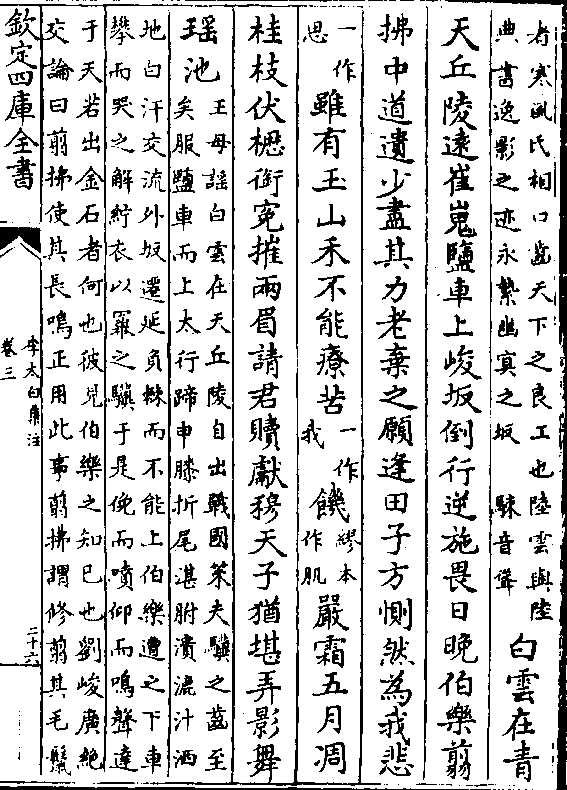 者寒風氏相口齒天下之良工也陸雲與陸
典書逸影之迹永縶幽冥之坂 騋音聳
白雲在青
天丘陵遠崔嵬鹽車上峻坂倒行逆施畏日晚伯樂翦
拂中道遺少盡其力老棄之願逢田子方惻然為我悲
一作思雖有玉山禾不能療苦一作我饑繆本作肌嚴霜五月凋
桂枝伏櫪銜寃摧兩眉請君贖獻穆天子猶堪弄影舞
瑶池
王母謡白雲在天丘陵自出戰國策夫驥之齒至
矣服鹽車而上太行蹄申膝折尾湛胕潰漉汁洒
地白汗交流外坂遷延負棘而不能上伯樂遭之下車
攀而哭之解紵衣以羃之驥于是俛而噴仰而鳴聲達
于天若出金石者何也彼見伯樂之知已也劉峻廣絶
交論曰翦拂使其長鳴正用此事翦拂謂修翦其毛鬛
欽定四庫全書
李太白集注
卷三
二十六